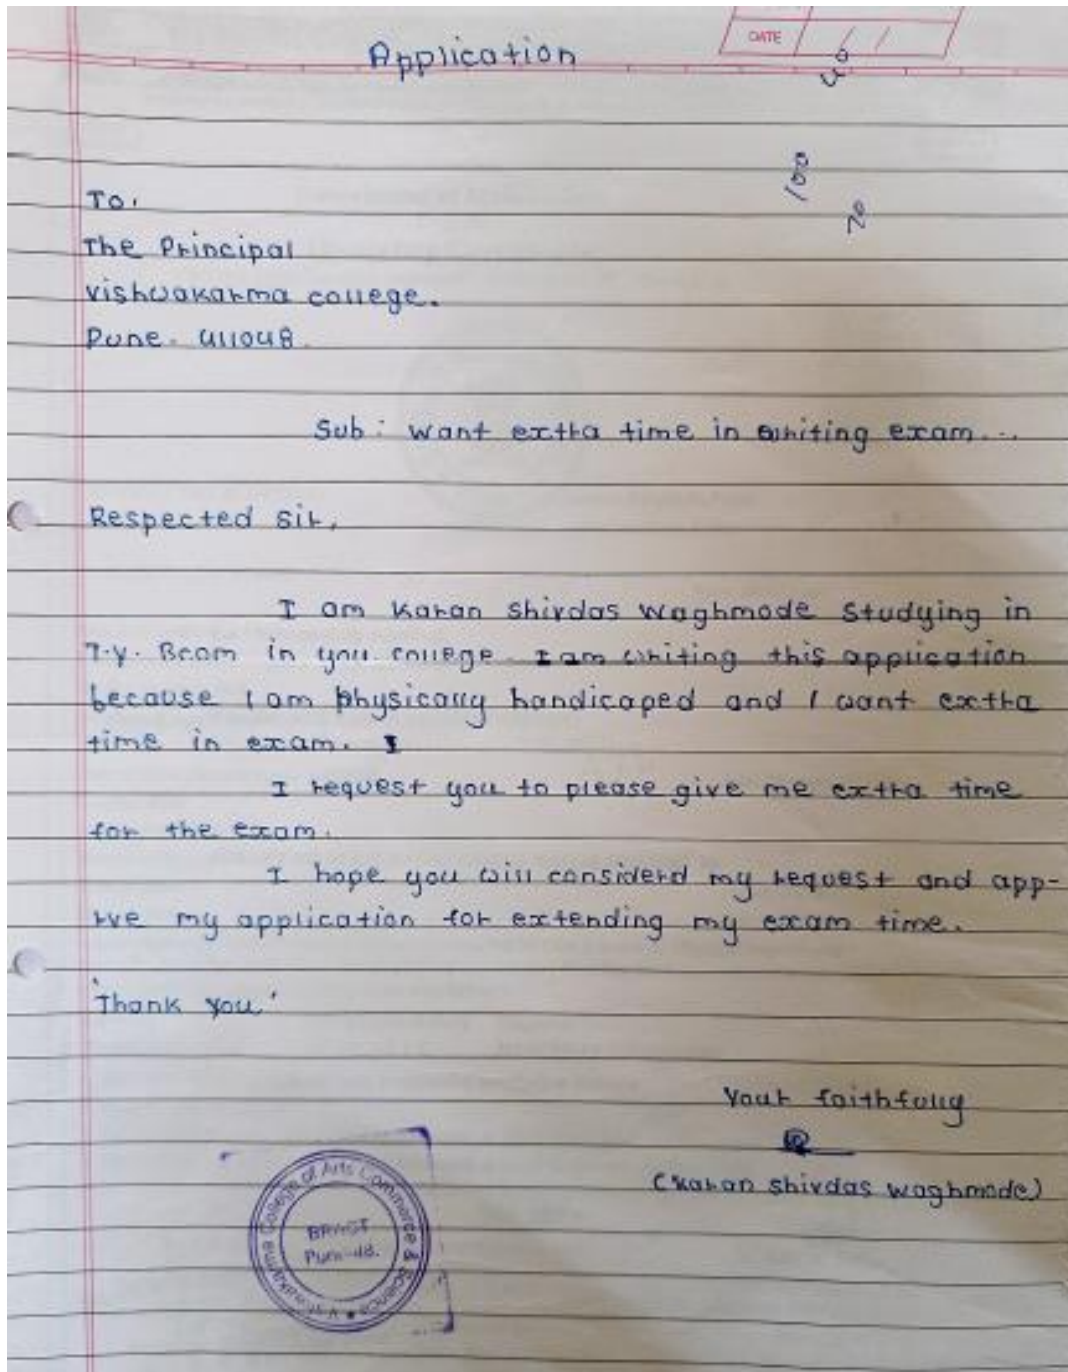 DATE / /
Application
40
100
20
To,
The Principal
Vishwakarma college.
Pune. 411048.
Sub : Want extra time in writing exam...
Respected Sir,
I am Karan Shivdas Waghmode Studying in
T.Y. Bcom in you college. I am writing this application
because I am physically handicaped and I want extra
time in exam. I
I request you to please give me extra time
for the exam.
I hope you will considerd my request and app-
rve my application for extending my exam time.
'Thank you'
Your faithfully
(Karan Shivdas Waghmode)
Vishwakarma College of Arts Commerce & Science
Pune-48.